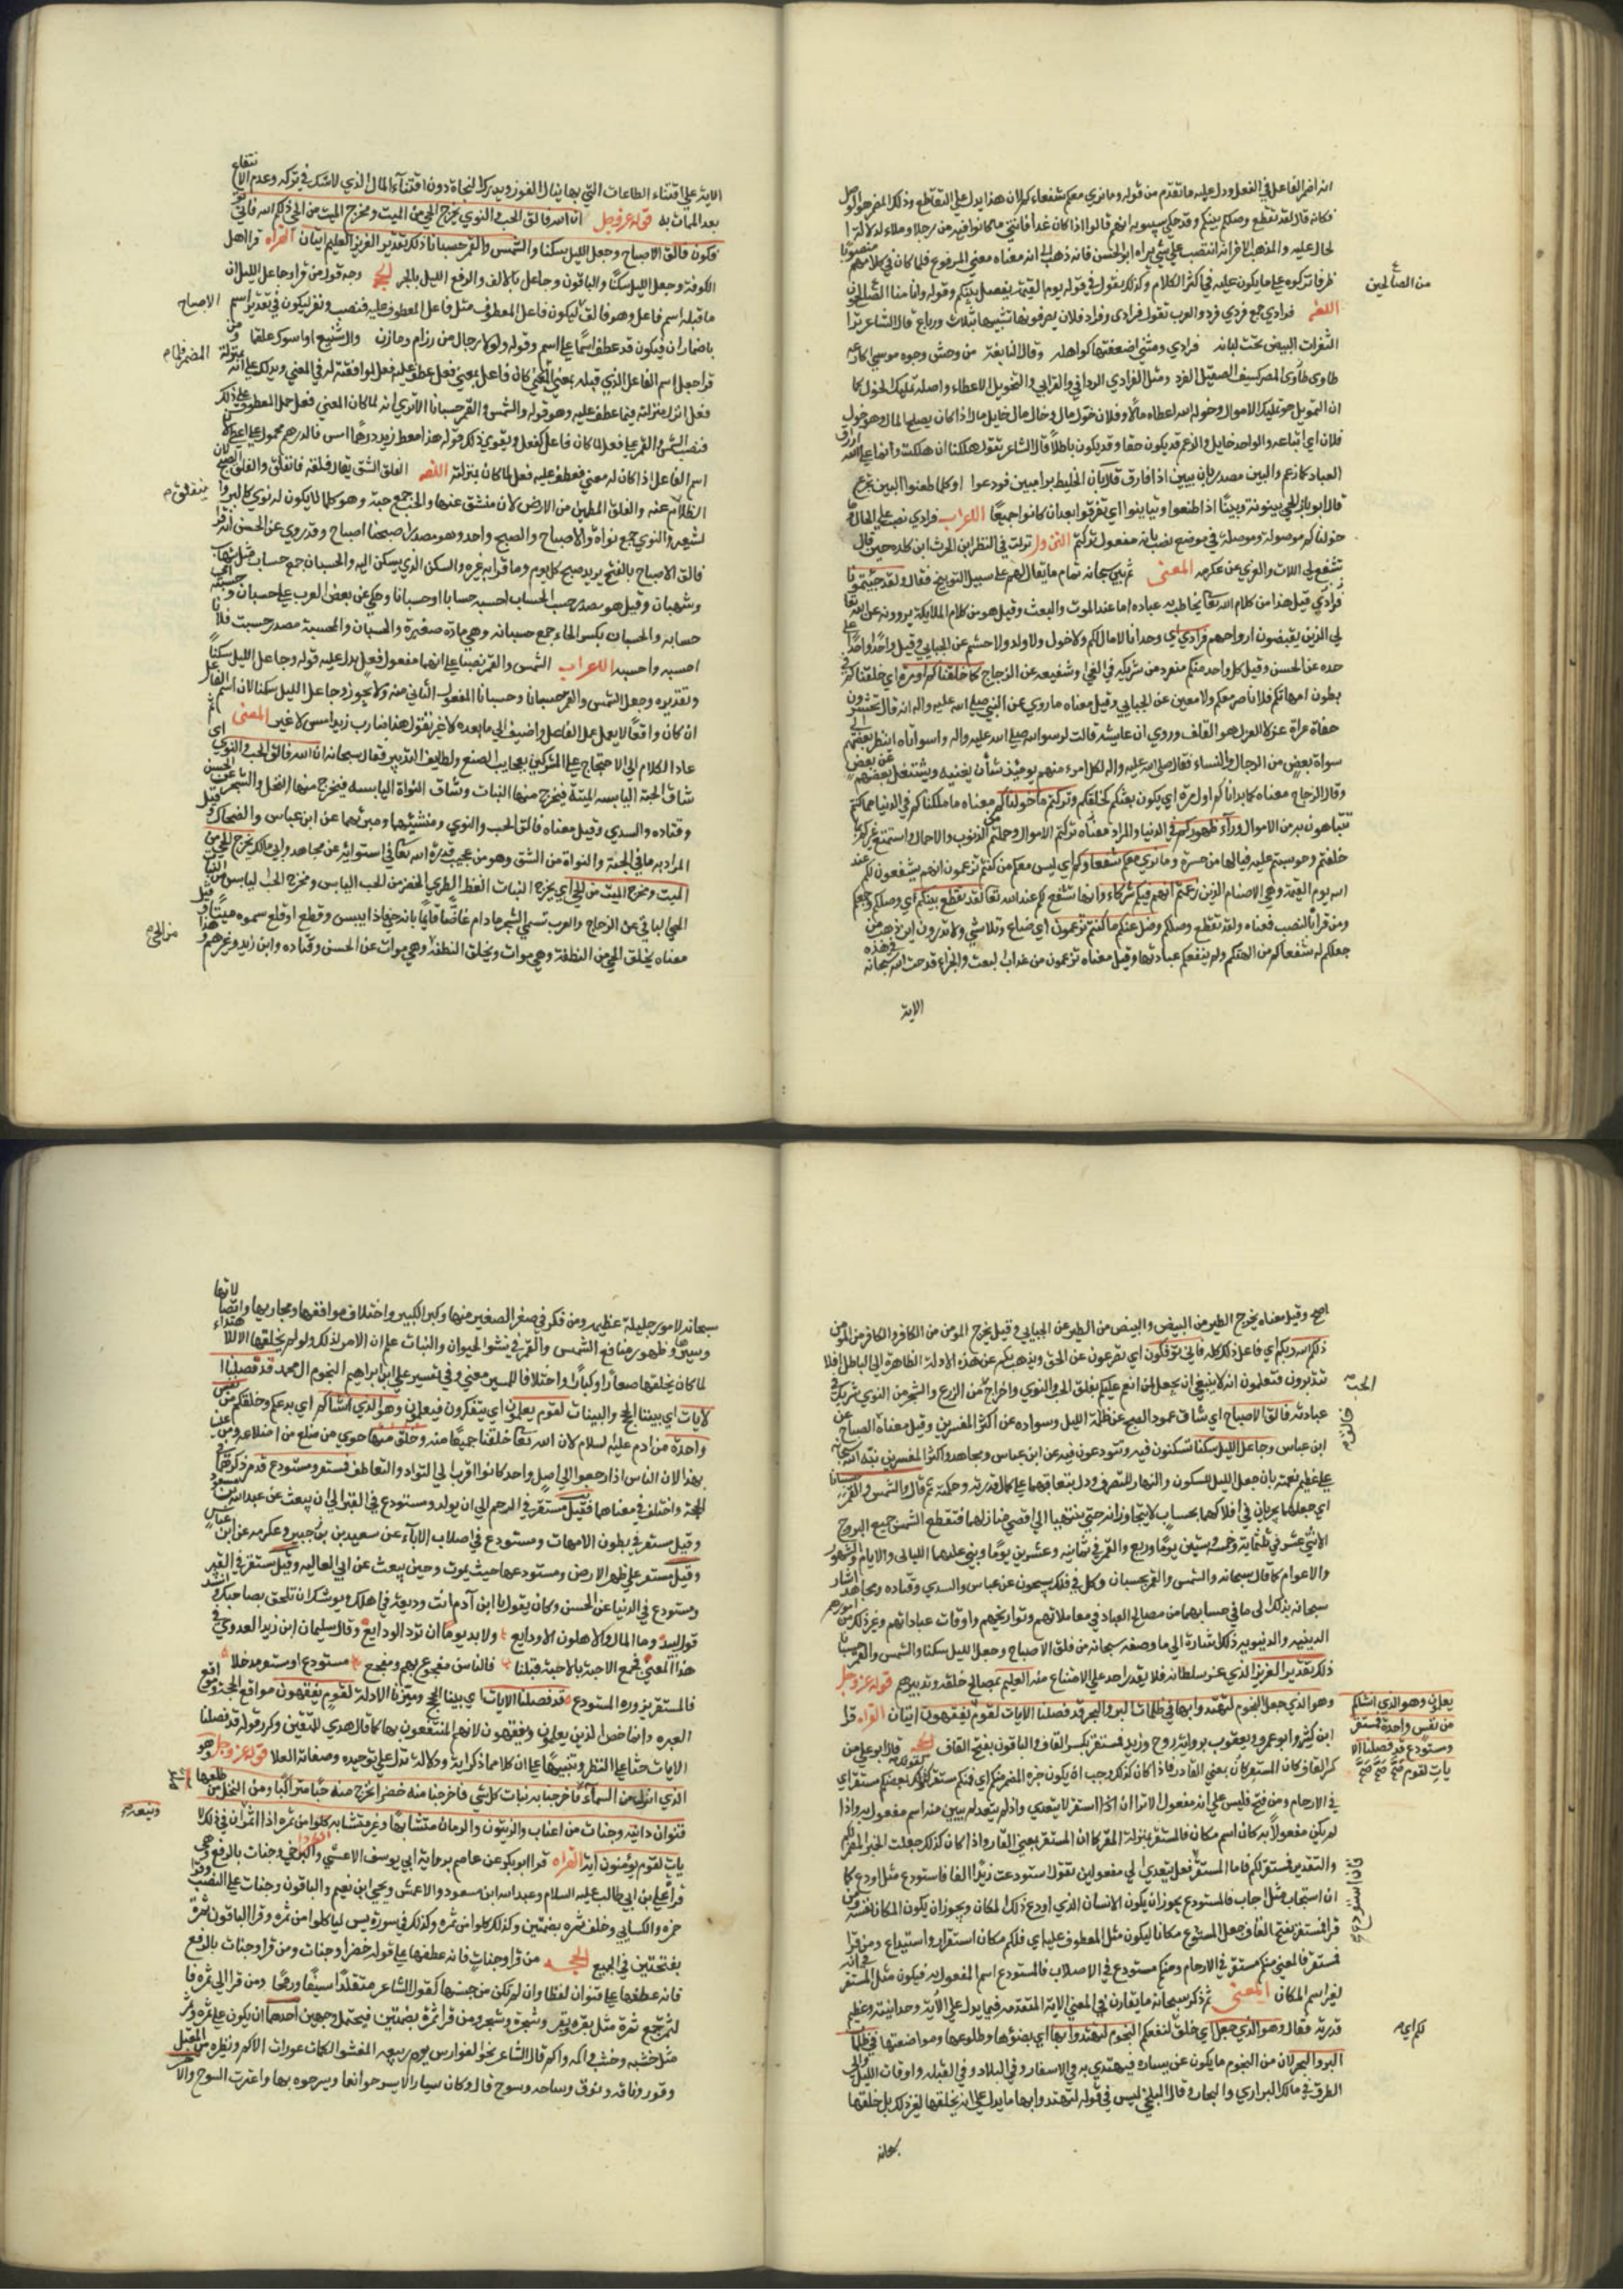 انه اضمر الفاعل في الفعل ودل عليه ما تقدم من قوله وما نري معكم شفعاءكم لان هذا يدل علي التقاطع وذلك المضمر هو الوصل
فكانه قال لقد تقطع وصلكم بينكم وقد حكي سيبويه انهم قالوا اذا كان غدا فأتني
لحال عليه والمذهب الاخر انه انتصب علي شيء يراه ابو الحسن فانه ذهب الى ان معناه معني المرفوع فلما جري في كلامهم منصوبا
ظرفا تركوه علي ما يكون عليه في اكثر الكلام وكذلك يقول في قوله يوم القيمة يفصل بينكم وقوله وانا منا الصالحون
من الصالحين
اللغة فرادي جمع فرد والعرب تقول فرادى وفراد فلان يصرفونها تشبيها بثلاث ورباع قال الشاعر
النعرات البيض تحت لبانه فرادي ومثنى اضعفتها كواهله وقال النابغة من وحش وجرة موشي اكارعه
طاوى المصير كسيف الصيقل الفرد ومثل الفرادي الردافي والقرابي والتخويل الاعطاء واصله تمليك الخول كما
ان التمويل تمليك الاموال وخوله الله اعطاه مالا وفلان خولي مال وخال مال وخايل مال اذا كان يصلح المال وهم خول
فلان اي اتباعه والواحد خايل والزعم قد يكون حقا وقد يكون باطلا قال الشاعر يقول هلكنا ان هلكت وانما علي الله ارزاق
العباد كما زعم والبين مصدر بان يبين اذا فارق قال بان الخليط برامتين فودعوا اوكلما ظعنوا لبين تجزع
قال ابو زيد بان الحي بينونة وبينا اذا ظعنوا وتباينوا اي تفرقوا بعد ان كانوا جميعا الاعراب فرادي نصب على الحال
خولناكم موصولة وصلة في موضع نصب بانه مفعول تركتم النزول نزلت في النضر ابن الحرث ابن كلدة حين قال
تشفع لي اللات والعزي عن عكرمه المعنى ثم بين سبحانه تمام ما يقال لهم علي سبيل التوبيخ فقال ولقد جئتمونا
فرادي قيل هذا من كلام الله تعا يخاطب به عباده اما عند الموت او البعث وقيل هو من كلام الملايكة يؤدونه عن الله تعا
الي الذين يقبضون ارواحهم فرادي اي وحدانا لا مال لكم ولا خول ولا ولد ولا حشم عن الجبايي وقيل واحدا واحدا علي
حده عن الحسن وقيل كل واحد منكم منفرد من شريكه في الغي وشقيقه عن الزجاج كما خلقناكم اول مرة اي كما خلقناكم في
بطون امهاتكم فلا ناصر معكم ولا معين عن الجبايي وقيل معناه ما روي عن النبي صلي الله عليه واله انه قال تحشرون
حفاة عراة غرلا والغرل هو القلف وروي ان عايشة قالت لرسول الله صلي الله عليه واله واسوأتاه اينظر بعضهم الي
سوأة بعض من الرجال والنساء فقال صلي الله عليه واله لكل امرء منهم يومئذ شأن يغنيه ويشتغل بعضهم عن بعض
وقال الزجاج معناه كما بدأناكم اول مرة اي يكون بعثكم كخلقكم وتركتم ما خولناكم معناه ما ملكناكم في الدنيا مما كنتم
تتباهون به من الاموال وراء ظهوركم في الدنيا والمراد معناه تركتم الاموال وحملتم من الذنوب والاحمال واستمتع غيركم بما
خلفتم وحوسبتم عليه فيا لها من حسرة وما نري معكم شفعاءكم اي ليس معكم من كنتم تزعمون انهم يشفعون لكم عند
الله يوم القيمة وهي الاصنام الذين زعمتم انهم فيكم شركاء وانها تشفع لكم عند الله تعا لقد تقطع بينكم اي وصلكم وجمعكم
ومن قرأ بالنصب فمعناه ولقد تقطع وصلكم وضل عنكم ما كنتم تزعمون اي ضاع وتلاشي ولا تدرون اين ذهب من
جعلتم له شفعاءكم من الهتكم ولم ينفعكم عبادتها وقيل معناه تزعمون من عذاب البعث والجزاء قد حث الله سبحانه في هذه
الاية
الاية علي اقتناء الطاعات التي بها ينال الفوز ويدرك النجاة دون اقتناء المال الذي لا شك في تركه وعدم الانتفاع
بعد الممات به قوله عز وجل ان الله فالق الحب والنوي يخرج الحي من الميت ومخرج الميت من الحي ذلكم الله فاني
تؤفكون فالق الاصباح وجعل الليل سكنا والشمس والقمر حسبانا ذلك تقدير العزيز العليم ايتان القراه قرا اهل
الكوفة وجعل الليل سكنا والباقون وجاعل بالالف والرفع الليل بالجر الحجه وجه قول من قرا وجاعل الليل ان
ما قبله اسم فاعل وهو فالق ليكون فاعل المعطوف مثل فاعل المعطوف عليه
الاصباح
باضمار ان فيكون قد عطف اسما علي اسم وقوله ولولا رجال من رزام ومازن وال سبيع او اسوءك علقما
قد اجعل اسم الفاعل الذي قبله بمعني المضي كان فاعل بمعني فعل عطف عليه فعل لموافقته له في المعني ويدلك علي انه بمنزلة
فعل انه نزل منزلته فيما عطف عليه وهو قوله والشمس والقمر حسبانا الا تري انه لما كان المعني فعل حمل المعطوف علي ذلك
فنصب الشمس والقمر علي فعل لما كان فاعل كفعل ويقوي ذلك قولهم هذا معط زيد درهما امس فالدرهم محمول علي اعطى لان
اسم الفاعل اذا كان لما مضي فعطف عليه فعل لما كان بمنزلته اللغه الفلق الشق يقال فلقه فانفلق والفلق الصبح لان
الظلام ينفلق عنه والفلق المطمئن من الارض لانه منشق عنها والحب جمع حبة وهو كلما لا يكون له نوي كالبر
الشعير والنوي جمع نواة والاصباح والصبح واحد وهو مصدر اصبحنا اصباحا وقد روي عن الحسن انه قرا
فالق الاصباح بالفتح يريد صبح كل يوم وما قرا به غيره والسكن الذي يسكن اليه والحسبان جمع حساب مثل شهاب
وشهبان وقيل هو مصدر حسبت الحساب احسبه حسابا وحسبانا وحكي عن بعض العرب علي حسبان وحسبته اي
حسابه والحسبان بكسر الحاء جمع حسبانه وهي وسادة صغيرة والحسبان والمحسبة مصدر حسبت فلانا
احسبه واحسبه الاعراب الشمس والقمر نصبا علي انهما مفعول فعل يدل عليه قوله وجاعل الليل سكنا
وتقديره وجعل الشمس والقمر حسبانا وحسبانا المفعول الثاني منه ولا يجوز وجاعل الليل سكنا لان اسم الفاعل
ان كان واقعا لا يعمل عمل الفاعل واضيف الي ما بعده لا غير تقول هذا ضارب زيد امس لا غير المعنى ثم
عاد الكلام الي الاحتجاج علي المشركين بعجايب الصنع ولطايف التدبير فقال سبحانه ان الله فالق الحب والنوي اي
شاق الحبة اليابسه الميتة فيخرج منها النبات وشاق النواة اليابسه فيخرج منها النخل والشجر عن الحسن
وقتاده والسدي وقيل معناه فالق الحب والنوي ومنشيهما ومبديهما عن ابن عباس والضحاك وقيل
المراد به ما في الحبة والنواة من الشق وهو من عجيب قدرة الله تعا في استوائه عن مجاهد وابي مالك يخرج الحي من
الميت ومخرج الميت من الحي اي يخرج النبات الغض الطري الخضر من الحب اليابس ومخرج الحب اليابس من النبات
الحي النامي عن الزجاج والعرب تسمي الشجر ما دام غضا قايما بانه حي فاذا يبس او قطع او قلع سموه ميتا وقيل
معناه يخلق الحي من النطفة وهي موات ويخلق النطفة وهي موات من الحي عن الحسن وقتاده وابن زيد وغيرهم وهذا
اصح وقيل معناه يخرج الطير من البيض والبيض من الطير عن الجبايي وقيل يخرج المومن من الكافر والكافر من المومن
ذلكم الله ربكم اي فاعل ذلك كله فاني تؤفكون اي تصرفون عن الحق ويذهب بكم عن هذه الادلة الظاهرة الي الباطل افلا
تتدبرون فتعلمون انه لا ينبغي ان يجعل لمن انعم عليكم بفلق الحب والنوي واخراج الزرع من الحب والشجر من النوي شريك في
عبادته فالق الاصباح اي شاق عمود الصبح عن ظلمة الليل وسواده عن اكثر المفسرين وقيل معناه خالق الصباح عن
ابن عباس وجاعل الليل سكنا تسكنون فيه وتتودعون فيه عن ابن عباس ومجاهد واكثر المفسرين نبه الله سبحانه
علي عظيم نعمته بان جعل الليل للسكون والنهار للتصرف ودل بتعاقبهما علي كمال قدرته وحكمته ثم قال والشمس والقمر حسبانا
اي جعلهما يجريان في افلاكهما بحساب لا يتجاوزانه حتي ينتهيا الي اقصي منازلهما فتقطع الشمس جميع البروج
الاثني عشر في ثلثماية وخمسة وستين يوما وربع والقمر في ثمانية وعشرين يوما وبني عليهما الليالى والايام والشهور
والاعوام كما قال سبحانه والشمس والقمر بحسبان وكل في فلك يسبحون عن ابن عباس والسدي وقتاده ومجاهد اشار
سبحانه بذلك الى ما في حسابهما من مصالح العباد في معاملاتهم وتواريخهم واوقات عباداتهم وغير ذلك من امورهم
الدينيه والدنيويه ذلك اشارة الي ما وصفه سبحانه من فلق الاصباح وجعل الليل سكنا والشمس والقمر حسبانا
ذلك تقدير العزيز الذي عز سلطانه فلا يقدر احد علي الامتناع منه العليم بمصالح خلقه وتدبيرهم قوله عز وجل
وهو الذي جعل لكم النجوم لتهتدوا بها في ظلمات البر والبحر قد فصلنا الايات لقوم يفقهون ايتان القراه قرا
يعلمون وهو الذي انشاكم
من نفس واحدة فمستقر
ومستودع قد فصلنا الا
يات لقوم صح صح صح
ابن كثير وابو عمرو ويعقوب برواية روح وزيد فمستقر بكسر القاف والباقون بفتح القاف الحجه قال ابو علي من
كسر القاف كان المستقر بمعني القار فاذا كان كذلك وجب ان يكون خبره المضمر منكم اي فمنكم مستقر كقولك بعضكم مستقر اي
في الارحام ومن فتح فليس علي انه مفعول الا ترا ان استقر لا يتعدي واذا لم يتعد لم يبن منه اسم مفعول به واذا
لم يكن مفعولا به كان اسم مكان فالمستقر بمنزلة المقر كما ان المستقر بمعني القار واذا كان كذلك جعلت الخبر المضمر لكم
والتقدير فمستقر لكم فاما المستودع فان استودع فعل يتعدي الي مفعولين تقول استودعت زيدا الفا فاستودع مثل اودع كما
ان استجاب مثل اجاب فالمستودع يجوز ان يكون الانسان الذي اودع ذلك المكان ويجوز ان يكون المكان نفسه
قرا فمستقر بفتح القاف جعل المستودع مكانا ليكون مثل المعطوف عليه اي فلكم مكان استقرار واستيداع ومن قرا
فمستقر فالمعني منكم مستقر في الارحام ومنكم مستودع في الاصلاب فالمستودع اسم المفعول به فيكون مثل المستقر في انه
لغير اسم المكان المعنى ثم ذكر سبحانه ما يقارن في المعني الاية المتقدمه فيما يدل علي وحدانيته وعظيم
قدرته فقال وهو الذي جعل لكم اي خلق لنفعكم النجوم لتهتدوا بها اي بضوئها وطلوعها ومواضعها في ظلمات
البر والبحر لان من النجوم ما يكون عن يساره فيهتدي به في الاسفار وفي البلاد وفي القبله واوقات الليل والي
الطرق في مسالك البراري والبحار وقال البلخي ليس في قوله لتهتدوا بها ما يدل علي انه لم يخلقها لغير ذلك بل خلقها
سبحانه
سبحانه لامور جليلة عظيمه ومن فكر في صغر الصغير منها وكبر الكبير واختلاف مواقعها ومجاريها واتصالاتها
وسيرها وظهور منافع الشمس والقمر في نشو الحيوان والنبات علم ان الامر كذلك ولو لم يخلقها الا للاهتداء
لما كان يخلقها صغارا وكبارا واختلافا للمسير معني وفي تفسير علي ابن ابراهيم النجوم ال محمد قد فصلنا ا
لايات اي بينا الحجج والبينات لقوم يعلمون اي يتفكرون فيعلمون وهو الذي انشاكم اي ابدعكم وخلقكم من نفس
واحدة من ادم عليه السلام لان الله تعا خلقنا جميعا منه وخلق منها حوي من ضلع من اضلاعه ومن علينا
بهذا لان الناس اذا رجعوا الي اصل واحد كانوا اقرب الي التواد والتعاطف فمستقر ومستودع قد مر ذكرهما في
الحجة واختلف في معناهما فقيل مستقر في الرحم الي ان يولد ومستودع في القبر الي ان يبعث عن عبد الله بن مسعود
وقيل مستقر في بطون الامهات ومستودع في اصلاب الاباء عن سعيد بن جبير وعكرمه عن ابن عباس
وقيل مستقر علي ظهر الارض ومستودعها حيث يموت وحين يبعث عن ابي العاليه وقيل مستقر في القبر
ومستودع في الدنيا عن الحسن وكان يقول يا ابن آدم انت وديعة في اهلك ويوشك ان تلحق بصاحبك وانشد
قول لبيد وما المال والاهلون الا ودايع ولا بد يوما ان ترد الودايع وقال سليمان ابن زيد العدوي في
هذا المعني فجع الاحبة بالاحبة قبلنا فالناس مفجوع بهم ومفجع مستودع او مستقر مدخلا
فالمستقر يزوره المستودع قد فصلنا الايات اي بينا الحجج وميزنا الادلة لقوم يفقهون مواقع الحجة ومواقع
العبره وانما خص الذين يعلمون ويفقهون لانهم المنتفعون بها كما قال هدي للمتقين وكرر قوله قد فصلنا
الايات حثا علي النظر وتنبيها علي ان كلا مما ذكر اية ودلالة تدل علي توحيده وصفاته العلا قوله عز وجل وهو
الذي انزل من السماء ماء فاخرجنا به نبات كل شي فاخرجنا منه خضرا نخرج منه حبا متراكبا ومن النخل من طلعها
قنوان دانيه وجنات من اعناب والزيتون والرمان مشتبها وغير متشابه كلوا من ثمره اذا اثمر ان في ذلكم لا
وينعه
يات لقوم يؤمنون اية القراه قرا ابو بكر عن عاصم برواية ابي يوسف الاعشي والبرجمي وجنات بالرفع وهي
قراة علي بن ابي طالب عليه السلام وعبد الله ابن مسعود والاعمش ويحيي ابن يعمر والباقون وجنات علي النصب وقرا
حمزه والكسايي وخلف ثمره بضمتين وكذلك كلوا من ثمره وكذلك في سورة يس ليأكلوا من ثمره وقرا الباقون ثمره
بفتحتين في الجميع الحجه من قرا وجنات فانه عطفها علي قوله خضرا وجنات ومن قرا وجنات بالرفع
فانه عطفها علي قنوان لفظا وان لم تكن من جنسها كقول الشاعر متقلدا سيفا ورمحا ومن قرا الي ثمره فا
لثمر جمع ثمرة مثل بقرة وبقر وشجرة وشجر ومن قرا ثمره بضمتين فيحتمل وجهين احدهما ان يكون علي ثمرة وثمر
مثل خشبه وخشب واكمة واكم قال الشاعر نحن الفوارس يوم ديسقه المغشو الكماة عوارت الاكم ونظيره من المعتل
وقور وناقة ونوق وساحه وسوح قال وكان سيان الا يسرحوا نعما او يسرحوه بها واغبرت السوح والا